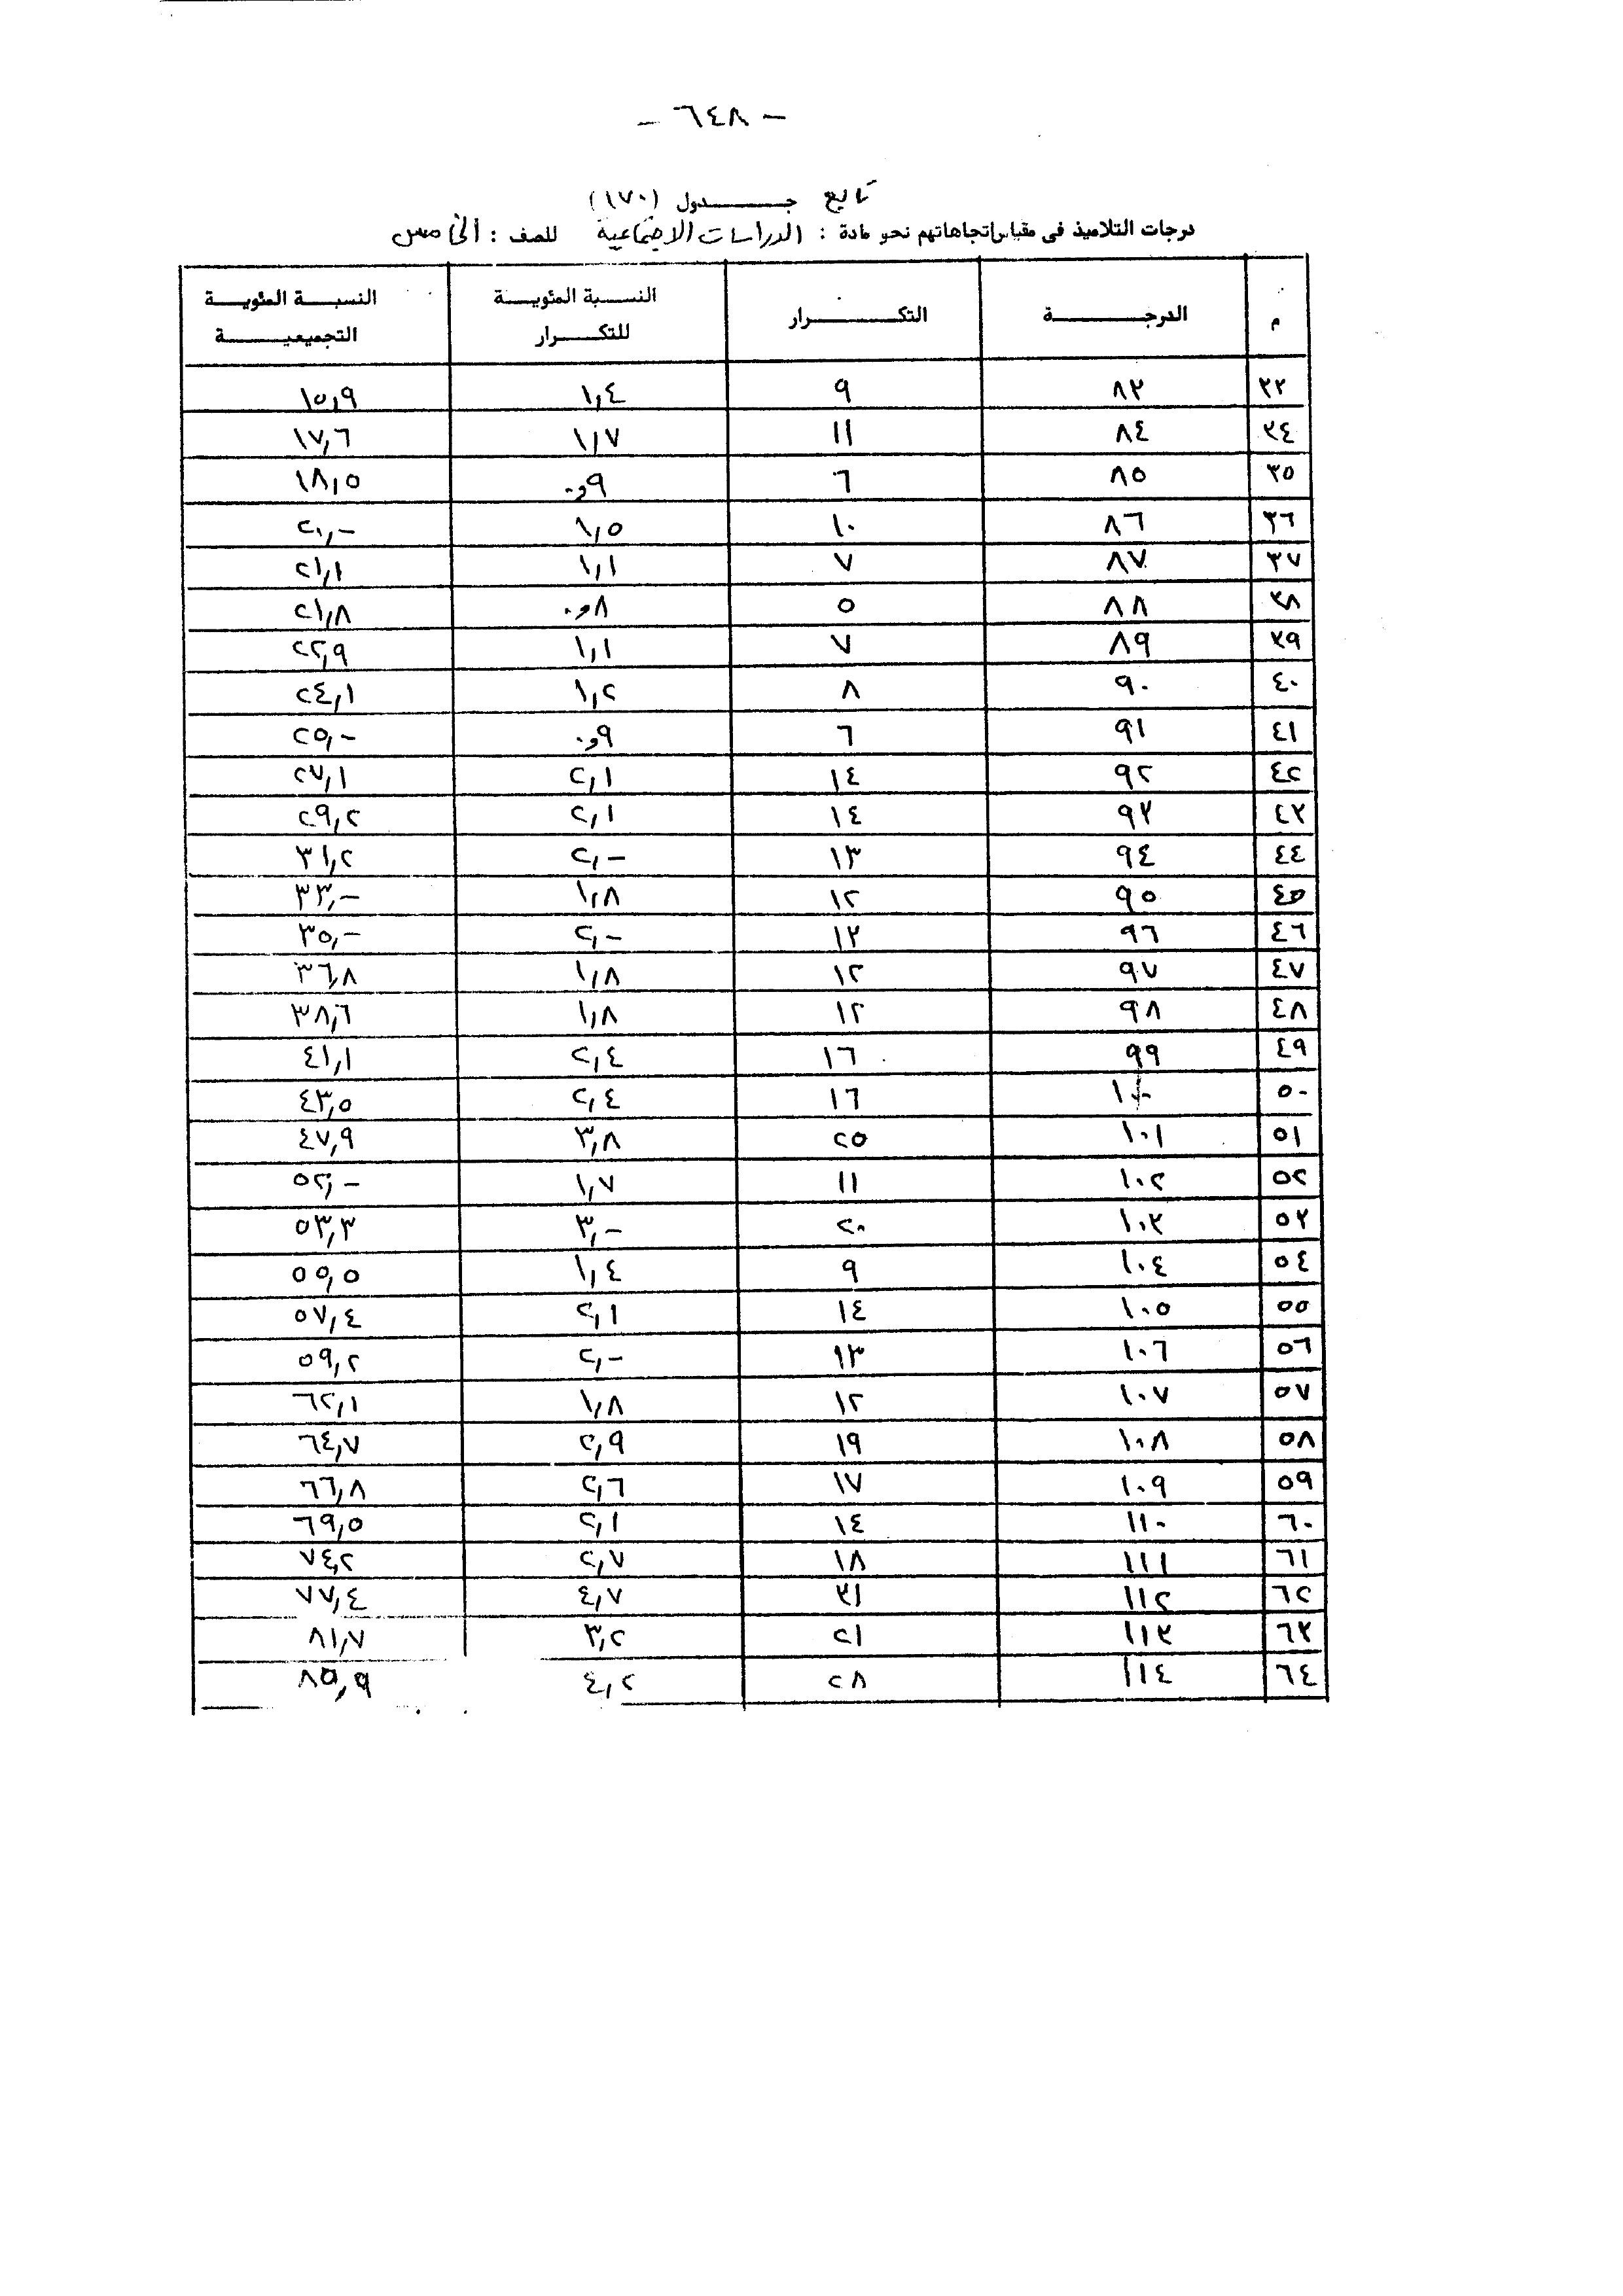 - ٦٤٨ -
تابع جدول (١٧٠)
درجات التلاميذ فى مقياس اتجاهاتهم نحو مادة : الدراسات الاجتماعية للصف : الخامس
م الدرجة التكرار النسبة المئوية للتكرار النسبة المئوية التجميعية
٣٣ ٨٣ ٩ ١,٤ ١٥,٩
٣٤ ٨٤ ١١ ١,٧ ١٧,٦
٣٥ ٨٥ ٦ ٠,٩ ١٨,٥
٣٦ ٨٦ ١٠ ١,٥ ٢٠,-
٣٧ ٨٧ ٧ ١,١ ٢١,١
٣٨ ٨٨ ٥ ٠,٨ ٢١,٨
٣٩ ٨٩ ٧ ١,١ ٢٢,٩
٤٠ ٩٠ ٨ ١,٢ ٢٤,١
٤١ ٩١ ٦ ٠,٩ ٢٥,-
٤٢ ٩٢ ١٤ ٢,١ ٢٧,١
٤٣ ٩٣ ١٤ ٢,١ ٢٩,٢
٤٤ ٩٤ ١٣ ٢,- ٣١,٢
٤٥ ٩٥ ١٢ ١,٨ ٣٣,-
٤٦ ٩٦ ١٣ ٢,- ٣٥,-
٤٧ ٩٧ ١٢ ١,٨ ٣٦,٨
٤٨ ٩٨ ١٢ ١,٨ ٣٨,٦
٤٩ ٩٩ ١٦ ٢,٤ ٤١,١
٥٠ ١٠٠ ١٦ ٢,٤ ٤٣,٥
٥١ ١٠١ ٢٥ ٣,٨ ٤٧,٩
٥٢ ١٠٢ ١١ ١,٧ ٥٢,-
٥٣ ١٠٣ ٢٠ ٣,- ٥٣,٣
٥٤ ١٠٤ ٩ ١,٤ ٥٥,٥
٥٥ ١٠٥ ١٤ ٢,١ ٥٧,٤
٥٦ ١٠٦ ١٣ ٢,- ٥٩,٢
٥٧ ١٠٧ ١٢ ١,٨ ٦٢,١
٥٨ ١٠٨ ١٩ ٢,٩ ٦٤,٧
٥٩ ١٠٩ ١٧ ٢,٦ ٦٦,٨
٦٠ ١١٠ ١٤ ٢,١ ٦٩,٥
٦١ ١١١ ١٨ ٢,٧ ٧٤,٢
٦٢ ١١٢ ٣١ ٤,٧ ٧٧,٤
٦٣ ١١٣ ٢١ ٣,٢ ٨١,٧
٦٤ ١١٤ ٢٨ ٤,٢ ٨٥,٩